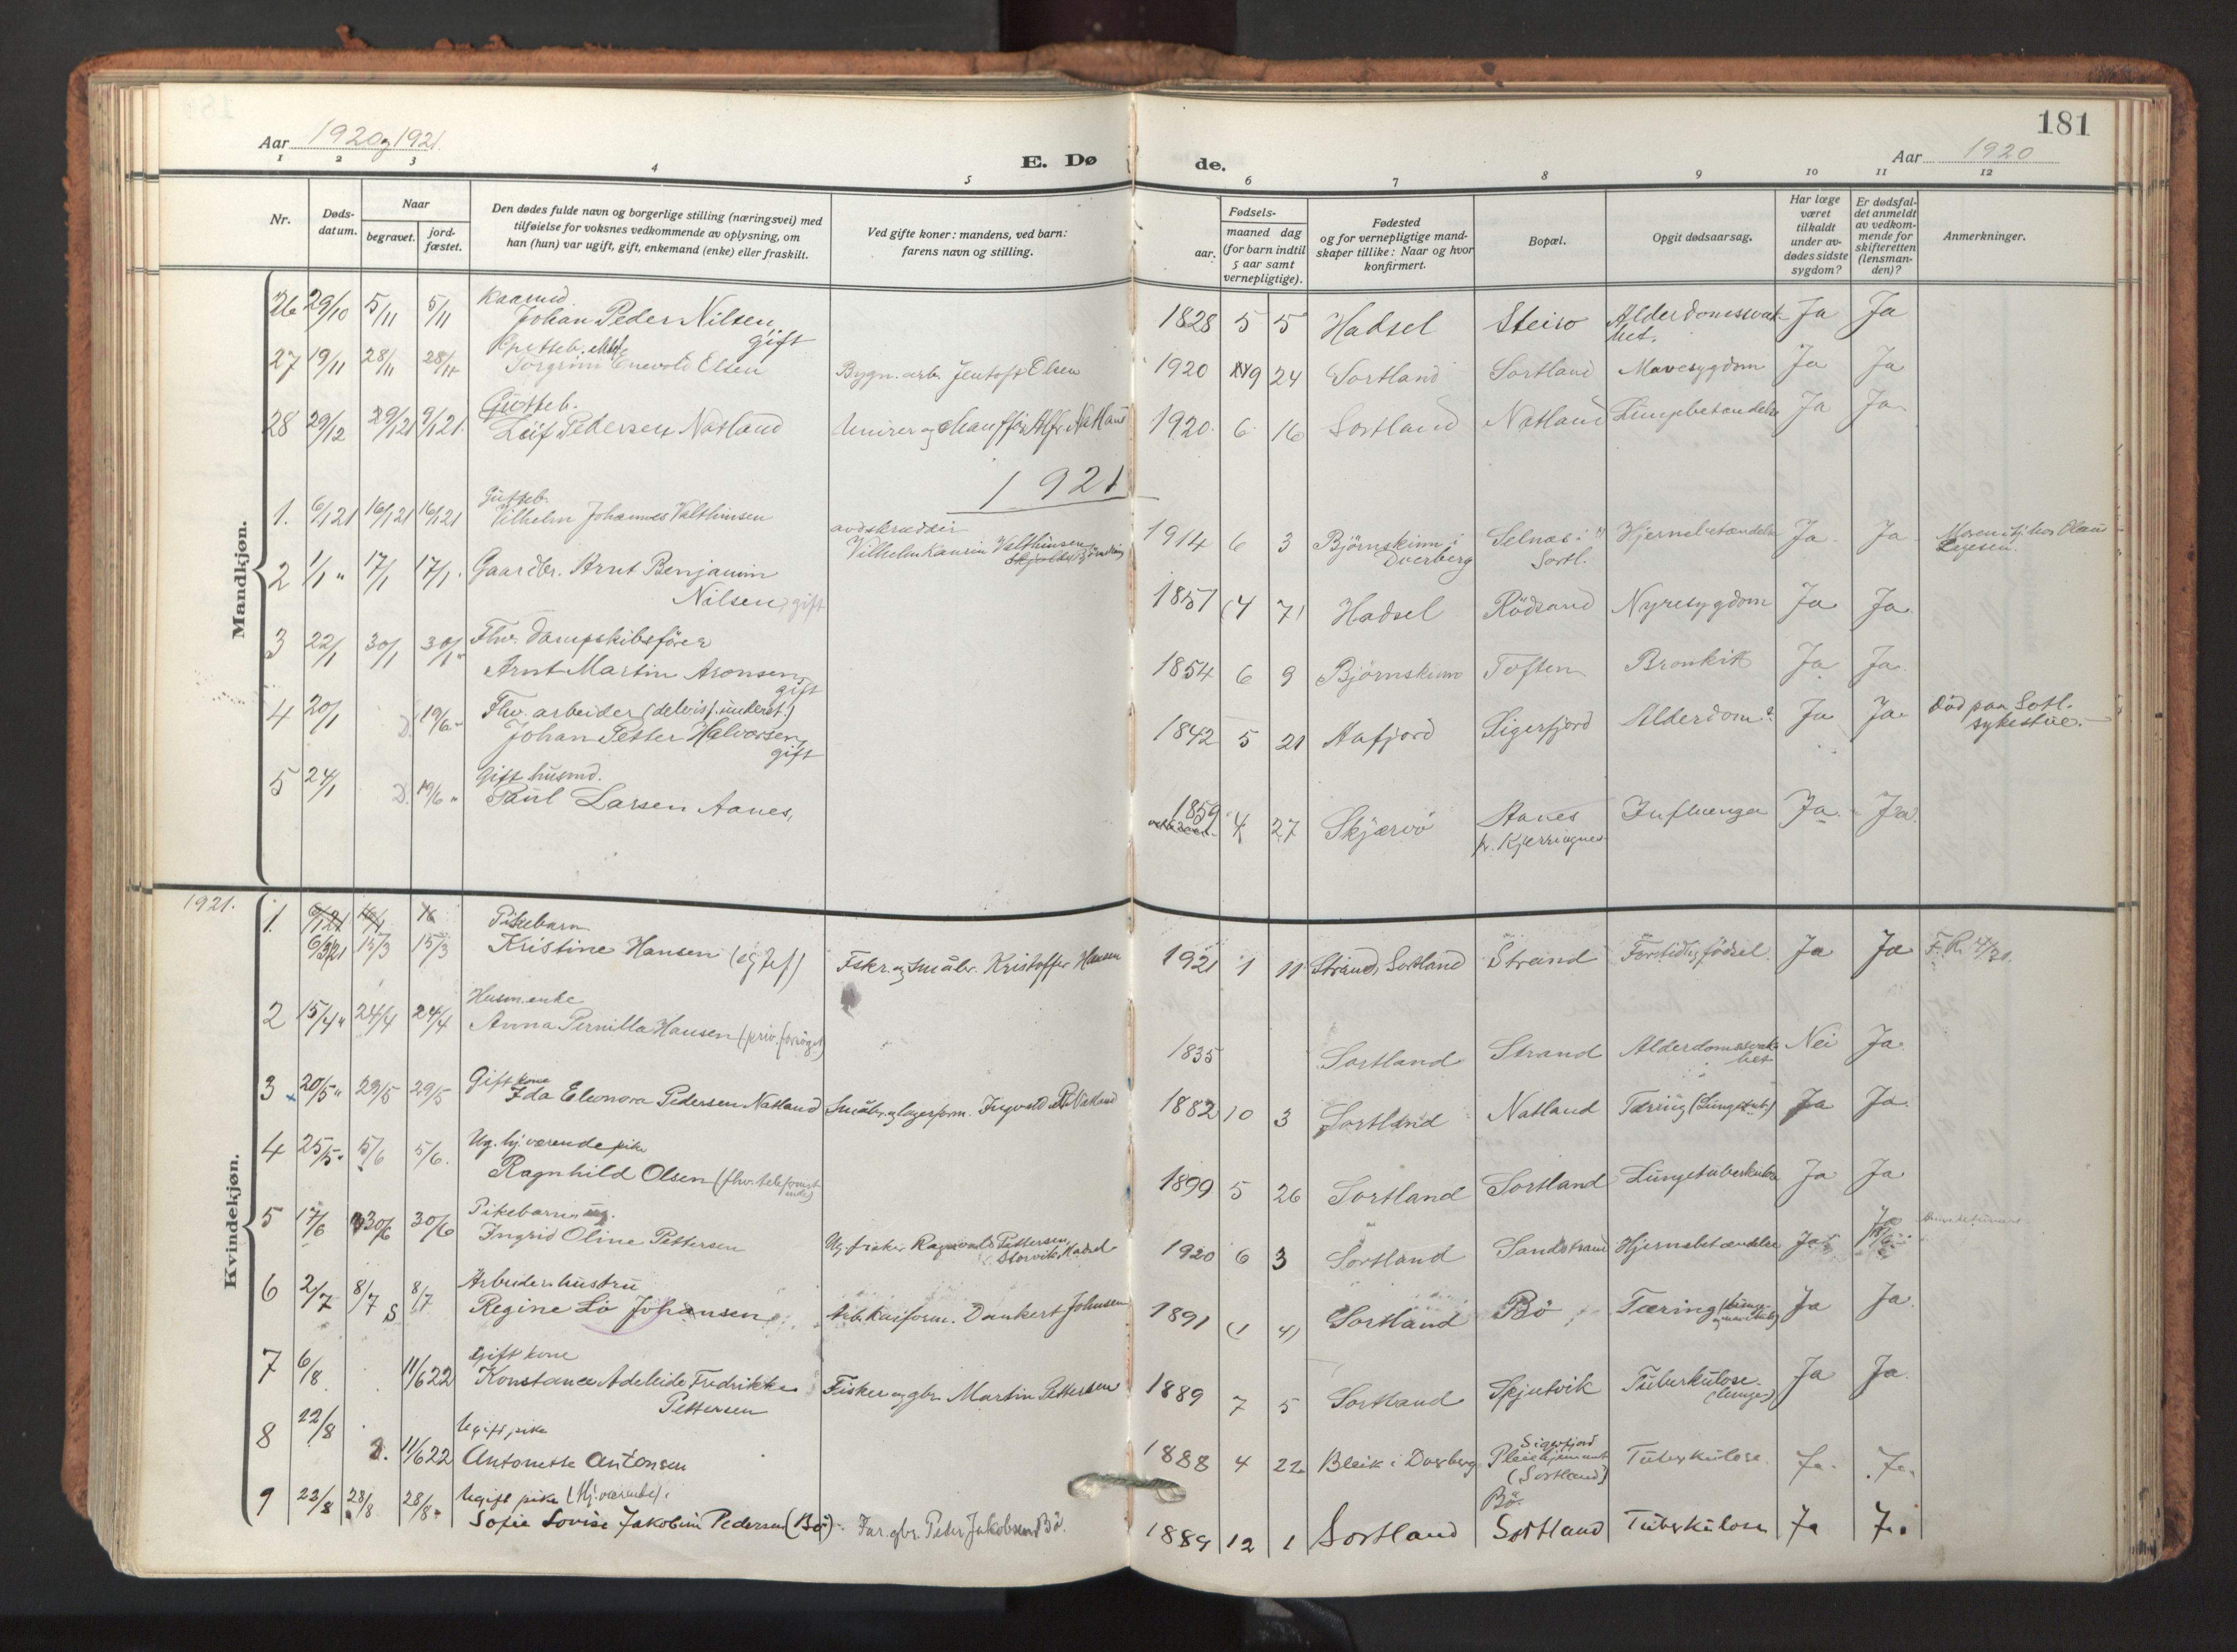 181
Aar 1920 og 1921.
E. Dø
de.
Aar 1920
1 2 3 4 5 6 7 8 9 10 11 12
Nr.
Døds-
datum.
Naar
begravet.
jord-
fæstet.
Den dødes fulde navn og borgerlige stilling (næringsvei) med
tilføielse for voksnes vedkommende av oplysning, om
han (hun) var ugift, gift, enkemand (enke) eller fraskilt.
Ved gifte koner: mandens, ved barn:
farens navn og stilling.
Fødsels-
aar.
maaned dag
(for barn indtil
5 aar samt
vernepligtige).
Fødested
og for vernepligtige mand-
skaper tillike: Naar og hvor
konfirmert.
Bopæl.
Opgit dødsaarsag.
Har læge
været
tilkaldt
under av-
dødes sidste
sygdom?
Er dødsfal-
det anmeldt
av vedkom-
mende for
skifteretten
(lensman-
den)?
Anmerkninger.
Mandkjøn.
26 29/10 5/11 5/11 Kaarmd.
Johan Peder Nilsen, gift
1828 5 5 Hadsel Steiro Alderdomssvak-
het. Ja Ja
27 19/11 28/11 28/11
Torgrim Enevold Elsen Bygn. arb. Jentoft Elsen 1920 9 24 Sortland Sortland Mavesygdom Ja Ja
28 29/12 29/1 21 9/1 21. Gutteb.
Leif Pedersen Natland Murer og chauffør Alfr. Natland 1920. 6 16 Sortland Natland Lungebetændelse Ja Ja
1921
1. 6/1 21 16/1 21 16/1 21 Gutteb.
Vilhelm Johannes Valthinsen
Vilhelm Kaurin Valthinsen
1914 6 3 Bjørnskinn i
Dverberg Selnæs i
Sortl. Hjernebetændelse Ja Ja
2 1/1 " 17/1 17/1. Gaardbr. Arnt Benjamin
Nilsen, gift 1851 (4 7) Hadsel Rödsand Nyresygdom Ja Ja.
3 22/1 30/1 30/1 " Fhv. dampskibsfører
Arnt Martin Aronsen, gift 1854 6 9 Bjørnskinn Toften Bronkit Ja Ja.
4 20/1 D. 19/6 " Fhv. arbeider (delvis f. underst.)
Johan Petter Halvorsen, gift 1842 5 21 Aafjord Sigerfjord Alderdom Ja Ja Död paa Sortl.
sykestue.
5 24/1 D. 19/6 " Gift husmd.
Paul Larsen Aanes, 1859 4 27 Skjærvö Aanes
pr. Kjerringnes Influenza Ja. Ja.
Kvindekjøn.
1921.
1. 6/3 21 15/3 15/3 Pikebarn
Kristine Hansen Fskr. og Småbr. Kristoffer Hansen 1921 1 11 Strand, Sortland Strand Førtidlig födsel. Ja Ja
2 15/4 " 24/4 24/4 Husm. enke
Anna Pernilla Hansen (priv. forsörget) 1835 Sortland Strand Alderdomssvak-
het Nei Ja.
3 20/5 " 29/5 29/5 Gift kone
Ida Eleonora Pedersen Natland Småbr. og lagerform. Ingvald Natland 1882 10 3 Sortland Natland Tæring (Lungetub.) Ja Ja.
4 25/5 " 5/6 5/6. Ug. hj. værende pike
Ragnhild Olsen 1899 5 26 Sortland Sortland Lungetuberkulose Ja Ja
5 17/6 30/6 30/6 Pikebarn
Ingrid Oline Pettersen Ug. fisker Ragnvald Pettersen,
Storvik, Hadsel 1920 6 3 Sortland Sandstrand Hjernebetændelse Ja
6 2/7 8/7 S 8/7 Arbeiderhustru
Regine Lö Johansen Arb. Dankert Johnsen 1891 (1 4) Sortland Bö Tæring Ja Ja.
7 6/8. 11/6 22 Gift kone
Konstance Adeleide Fredrikke
Pettersen Fisker og gbr. Martin Pettersen 1889 7 5 Sortland Spjutvik Tuberkulose.
(lunge) Ja Ja.
8 22/8 11/6 22 Ugift pike
Antonette Antonsen 1888 4 22 Bleik i Dverberg Sigerfjord
Pleiehjemmet
(Sortland) Tuberkulose. Ja. Ja.
9 23/8 28/8 28/8 Ugift pike (Hj. værende).
Sofie Lovise Jakobine Pedersen (Bö). Far. gbr. Peder Jakobsen Bö. 1889 12 1 Sortland Bö.
Sortland Tuberkulose Ja Ja.